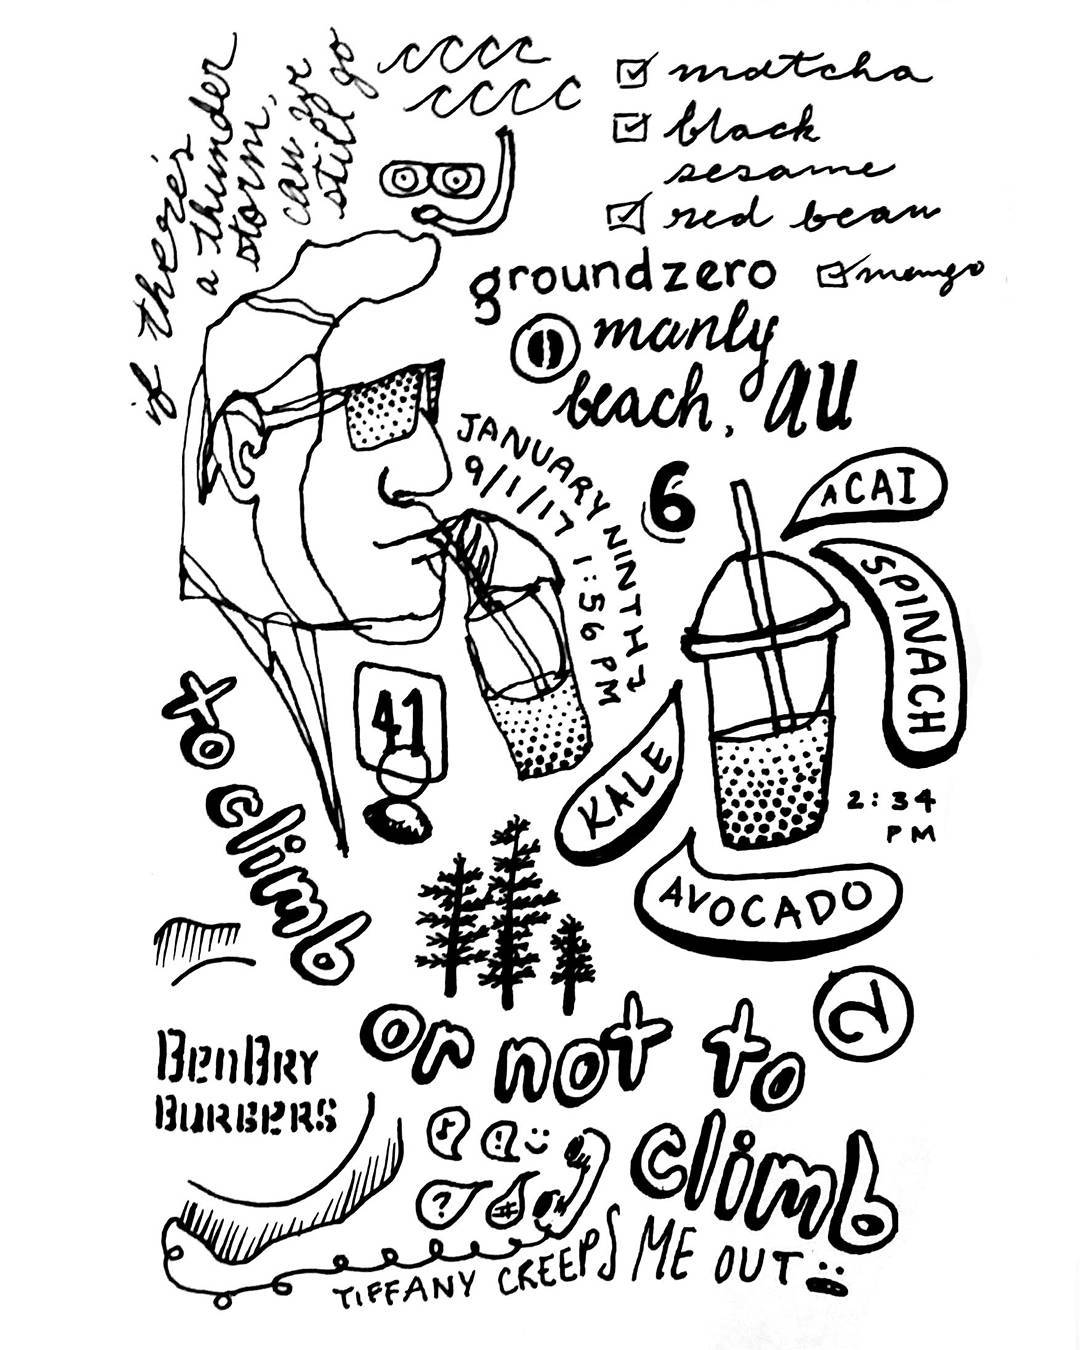 if there's
a thunder
storm,
can we
still go
cccc
cccc
matcha
black
sesame
red bean
mango
groundzero
manly
beach, AU
JANUARY NINTH
9/1/17 1:56 PM
6
ACAI
SPINACH
KALE
AVOCADO
2:34
PM
41
to climb
or not to
climb
2
BenBry
Burgers
♪ ! :)
? #
TIFFANY CREEPS ME OUT :(